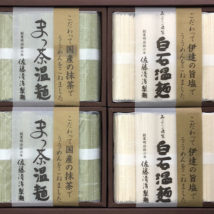 こだわって国産の抹茶で
うーめんをこねました
まっ茶温麺
佐藤清治製麺
こだわって伊達の旨塩で
うーめんをこねました
白石温麺
佐藤清治製麺
こだわって国産の抹茶で
うーめんをこねました
まっ茶温麺
佐藤清治製麺
こだわって伊達の旨塩で
うーめんをこねました
白石温麺
佐藤清治製麺